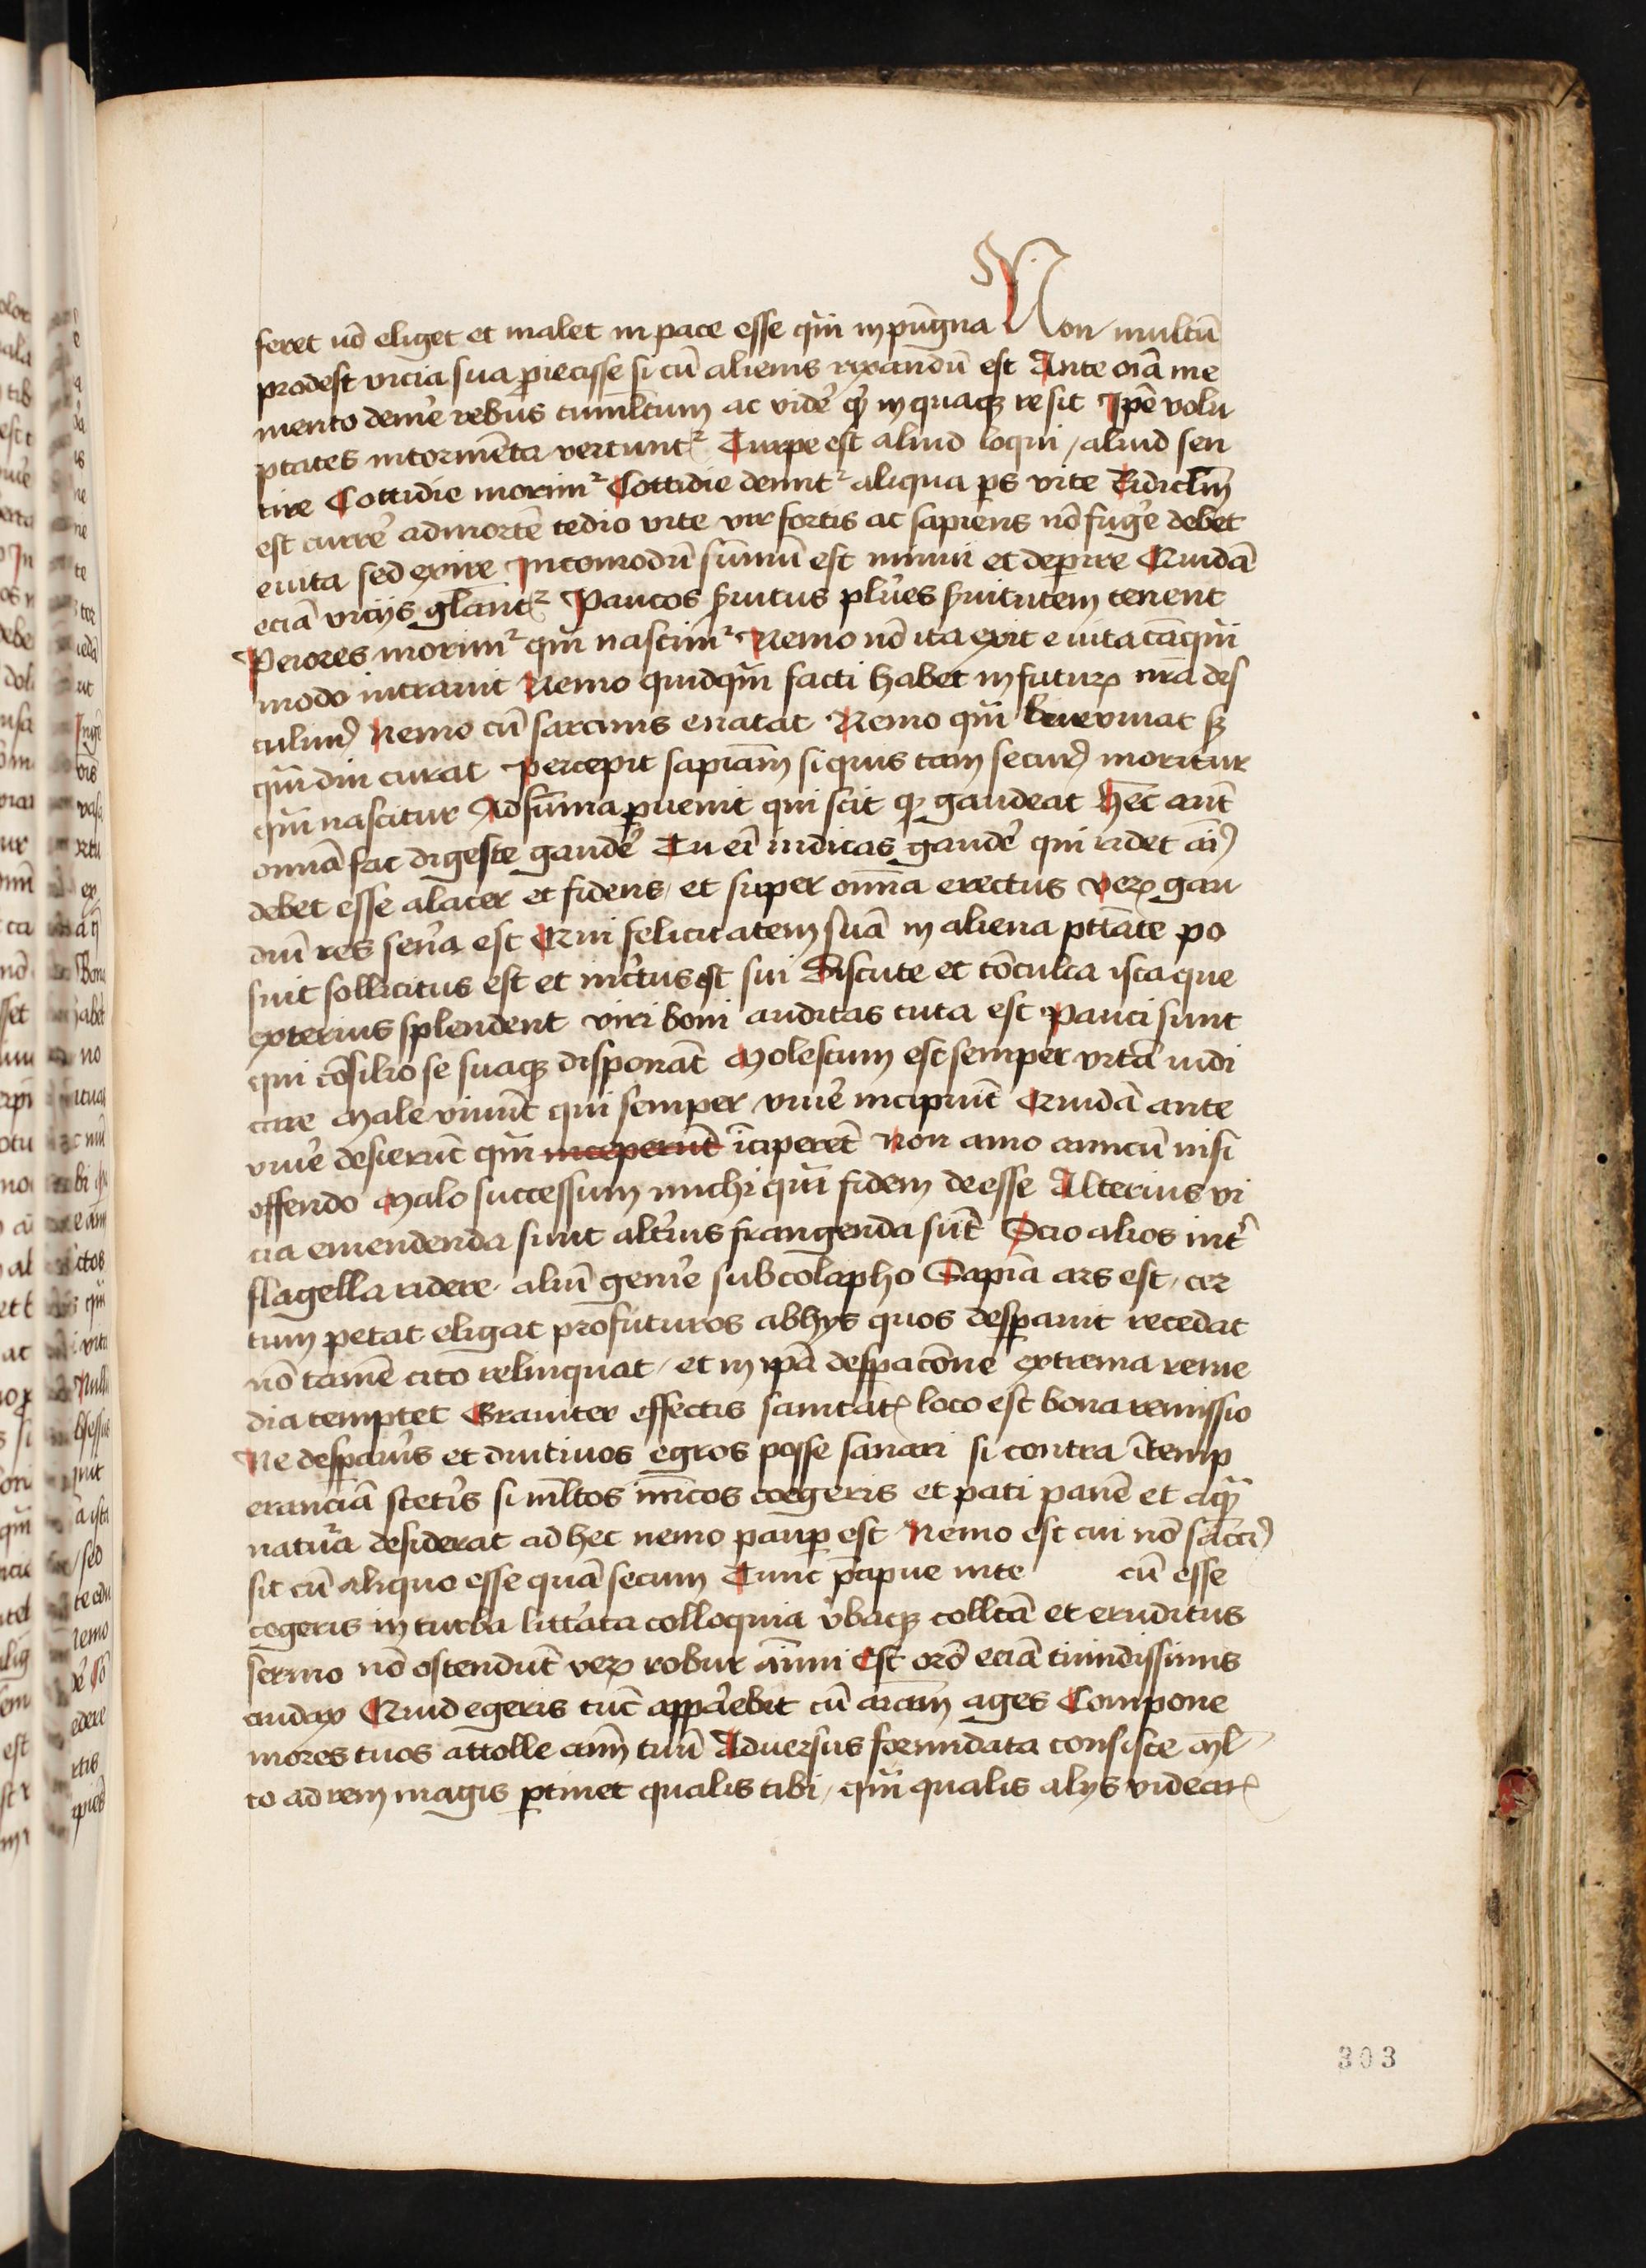 feret nō eliget et malet in pace esse qm̄ in pūgna Non multū
prodest vicia sua ꝓiecisse si cū alienis rixandū est Ante oīa me
mento demē rebus tumltum ac vidē qͥd in quaqꝫ re sit Ip̄e volu
ptates in tormēta vertuntᷣ Turpe est aliud loqui / aliud sen
tire Cottidie morimᷣ Cottidie demitᷣ aliqua ps vite Ridiclm̄
est currē ad mortē tedio vite vir fortis ac sapiens nō fugē debet
e uita sed exire Incomodū sūmū est minui et deꝑire Quidā
eciā vicijs glāntᷣ Paucos ẜuitus plūes ẜuitutem tenent
Peiores morimᷣ qm̄ nascimᷣ Nemo nō ita exit e uita tāqm̄
modo intrauit Nemo quidqm̄ facti habet in futuꝝ nr̄a des
culimꝰ Nemo cū sarcinis enatat Nemo qm̄ bn̄ viuat sꝫ
qm̄ diu curat Percepit sapiam̄ si quis tam securꝰ moritur
qm̄ nascitur Ad sūma ꝑuenit qui scit qͦ gaudeat hec aūt
om̄ia fac digeste gaudē Tu eū iudicas gaudē qui ridet aīꝰ
debet esse alacer et fidens / et super om̄ia erectus veꝝ gau
diū res seūa est Qui felicitatem suā in aliena ptāte po
suit sollicitus est et incertus est sui Discute et cōculca ista que
exterius splendent viri boni auditas tuta est Pauci sunt
qui cōsilio se suaqꝫ disponāt Molestum est semper vitā indi
care Male viuūt qui semper viuē incipiūt Quidā ante
viuē desierūt qm̄ inceperūt īciperēt Non amo amicū nisi
offendo Malo successum michi qm̄ fidem deesse Alterius vi
cia emendenda sunt altius frangenda sūt Scio alios intᷣ
flagella ridere · aliū gemē sub colapho Sapīa ars est / cer
tum petat eligat profuturos ab hys quos desꝑauit recedat
nō tamē cito relinquat / et in ip̄a desꝑacōne extrema reme
dia temptet Grauiter effectis sanitatꝭ loco est bona remissio
Ne desꝑaūis et diutinos egros posse sanari si contra ītemp
eranciā stetīs si mltos īm̄icos coegeris et pati panē et aqm̄
natura desiderat ad hec nemo pauꝑ est Nemo est cui nō saccꝰ
sit cū aliquo esse quā secum Tunc p̄cipue in te cū esse
cogeris in turba littᷣata colloquia v̄baqꝫ colltā et eruditus
sermo nō ostendūt veꝝ robur aīmi Est orō eciā timidissimis
audax Quid egeris tūc apparebit cū aīam ages Compone
mores tuos attolle aīm tuū Aduersus formidata consiste ml̄
to ad rem magis ꝑtinet qualis tibi / qm̄ qualis alijs videarꝭ
303